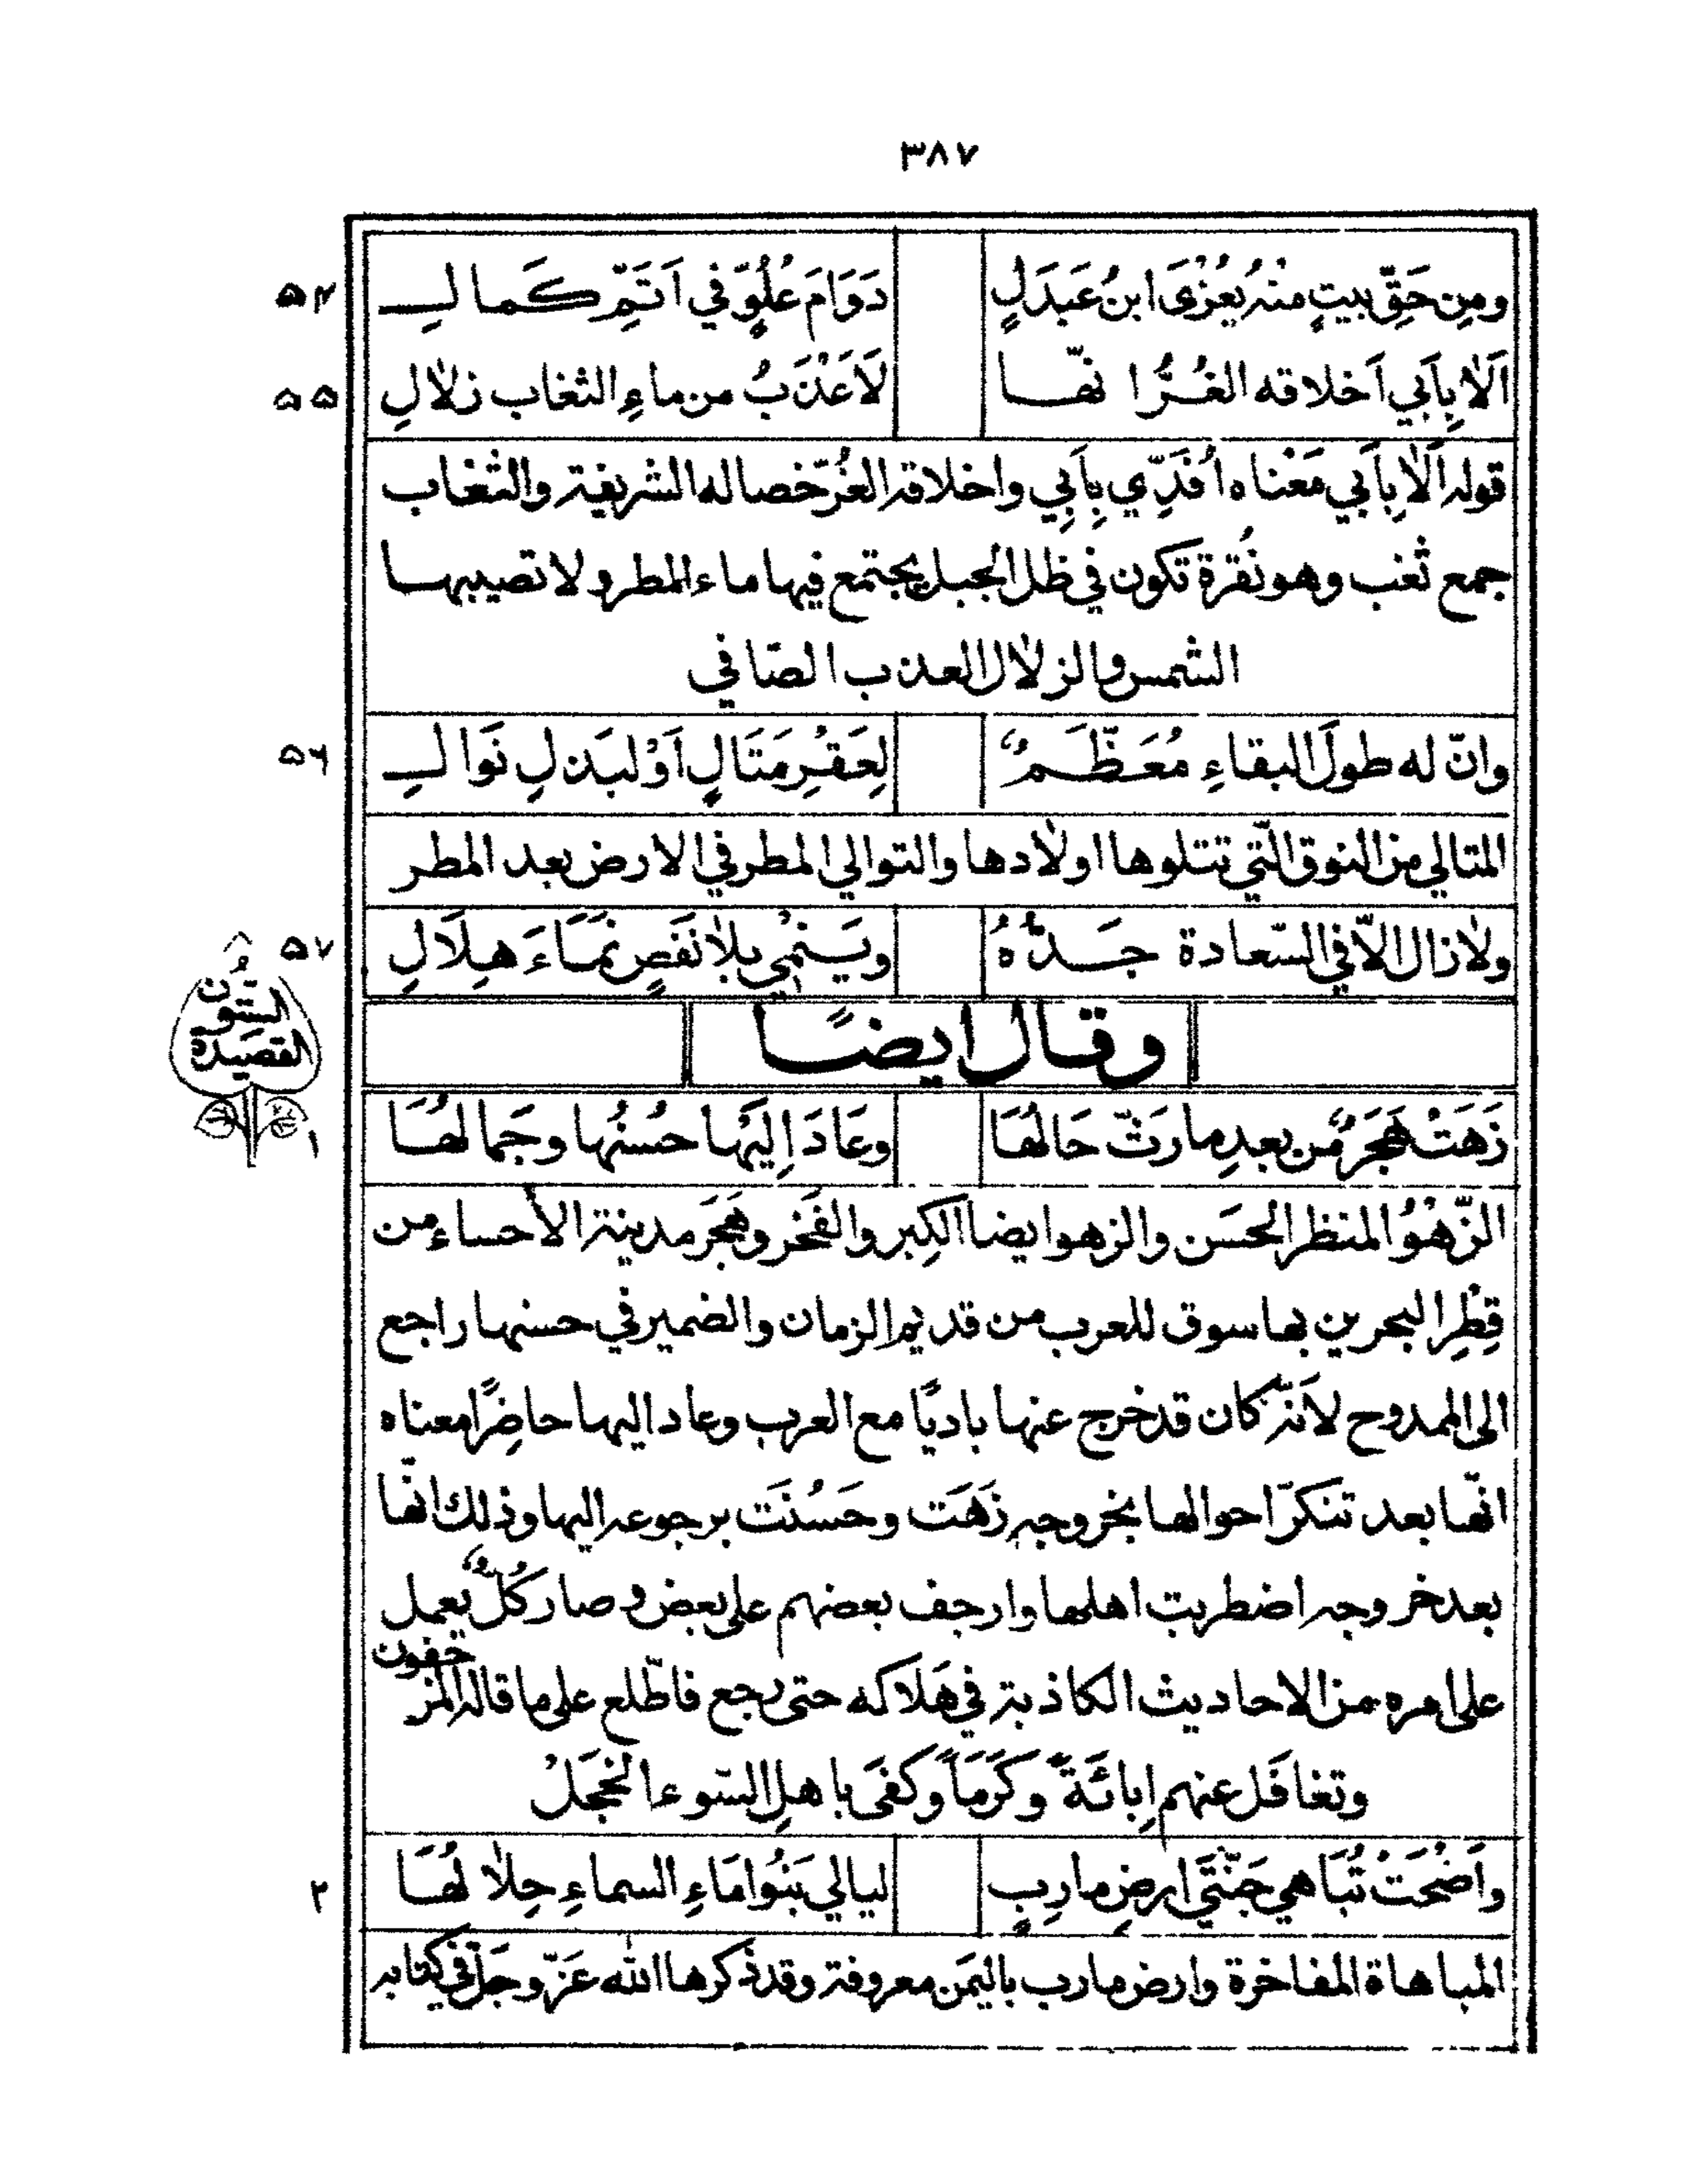 ٣٨٧
ومِن حَقِّ بيتٍ منْهُ يُعْزَى ابنُ عَبدَلٍ دَوَامَ عُلُوٍّ في اَتَمِّ كَمالِ ٥٤
اَلاٰ بِاَبي اَخلاقه الغُرُّ انّها لَاَعْذَبُ من ماءِ الثغاب زلاٰلِ ٥٥
قوله اَلاٰ بِاَبي مَعْناه اُفَدِّي بِاَبِي واخلاقه الغُرّ خصاله الشريفة والثغاب
جمع ثَغب وهو نُقرة تكون في ظل الجبل يجتمع فيها ماء المطر ولا تصيبها
الشمس والزلاٰل العذب الصّافي
وانّ له طولَ البقاءِ مُعَظَّمٌ لِعَقْرِ مَتَالٍ اَوْ لبَذلِ نَوالِ ٥٦
المتالي من النوق الّتي تتلوها اولاٰدها والتوالي المطر في الارض بعد المطر
ولاٰ زال الاّ في السّعادة جَدُّهُ ويَنمِي بلاٰ نَقصٍ نَمَاءَ هِلَالِ ٥٧
السّتُّون
القصيدة
وقال ايضًا
زَهَتْ هَجَرٌ من بعدِ ما رَثّ حَالُها وعَادَ اِلَيْها حُسنُها وجَمالُها ١
الزّهْوُ المنظر الحسَن والزهو ايضا الكِبر والفَخر وهَجَر مدينة الأحساء من
قِطْرِ البحرين بها سوق للعرب من قديم الزمان والضمير في حسنها راجع
الى الممدوح لاَنّه كان قد خرج عنها باديًا مع العرب وعاد اليها حاضِرًا معناه
انّها بعد تنكرّ احوالها بخروجه زَهَت وحَسُنَت برجوعه اليها وذلك انّها
بعد خروجه اضطربت اهلها وارجف بعضهم على بعض وصار كُلٌّ يعمل
على امره من الاحاديث الكاذبة في هَلاكه حتى رجع فاطّلع على ما قاله المرجفون
وتغافَل عنهم اِبائَةً وكَرَماً وكفَى باهلِ السّوء الخجَلْ
واَضْحَتْ تُبَاهي جَنّتَي ارضِ مارِبٍ ليالي بَنُوا مَاءِ السماءِ حِلاٰلُها ٢
المباهاة المفاخرة وارض مارب باليمَن معروفة وقد ذكرها الله عَزّ وجَلّ في كِتابه